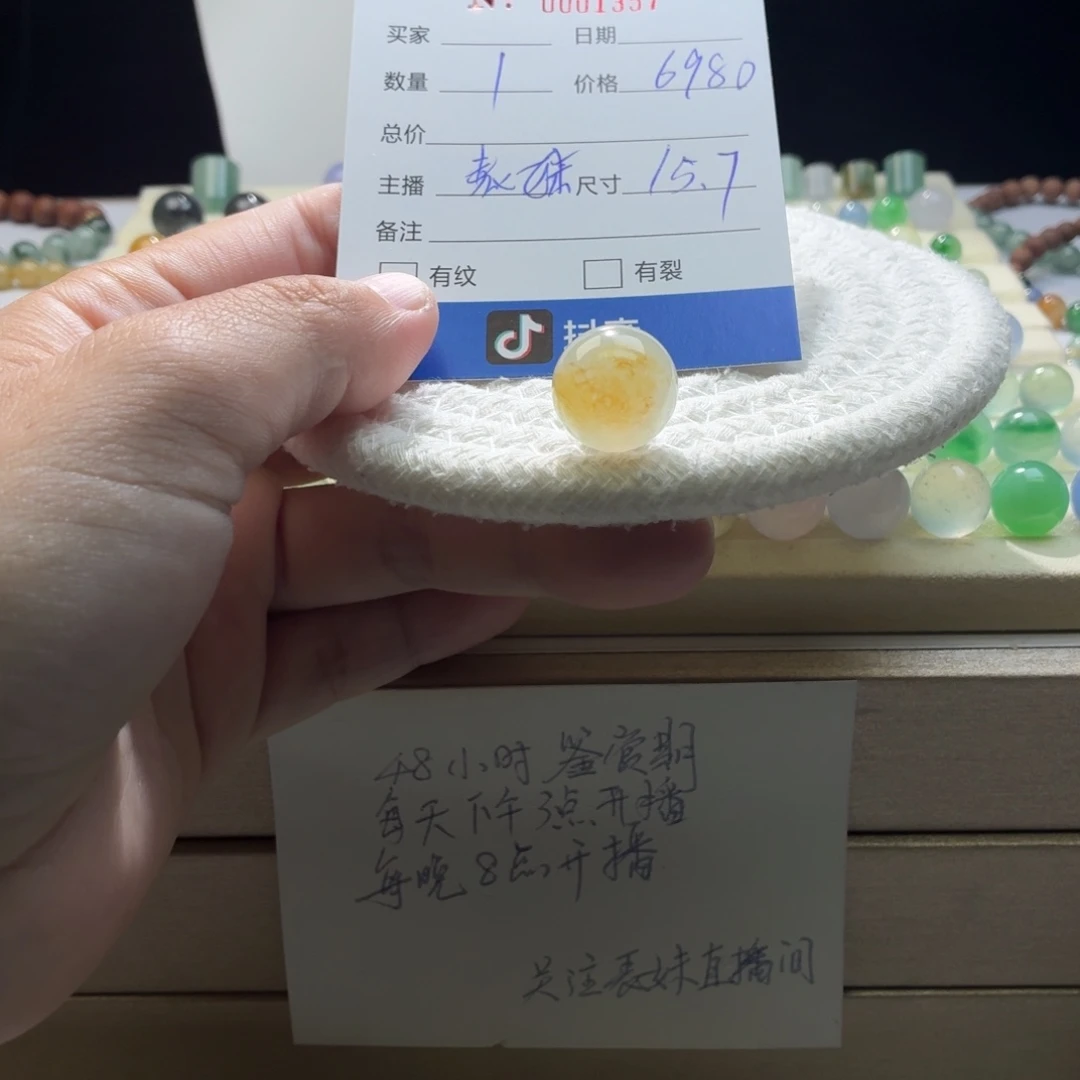 N: 0001357
买家 日期
数量 1 价格 6980
总价
主播 表妹 尺寸 15.7
备注
有纹 有裂
抖音
48小时鉴赏期
每天下午3点开播
每晚8点开播
关注表妹直播间